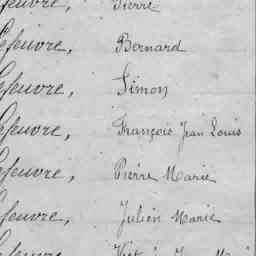 Lefeuvre, Pierre
Lefeuvre, Bernard
Lefeuvre, Simon
Lefeuvre, François Jean Louis
Lefeuvre, Pierre Marie
Lefeuvre, Julien Marie
Lefeuvre